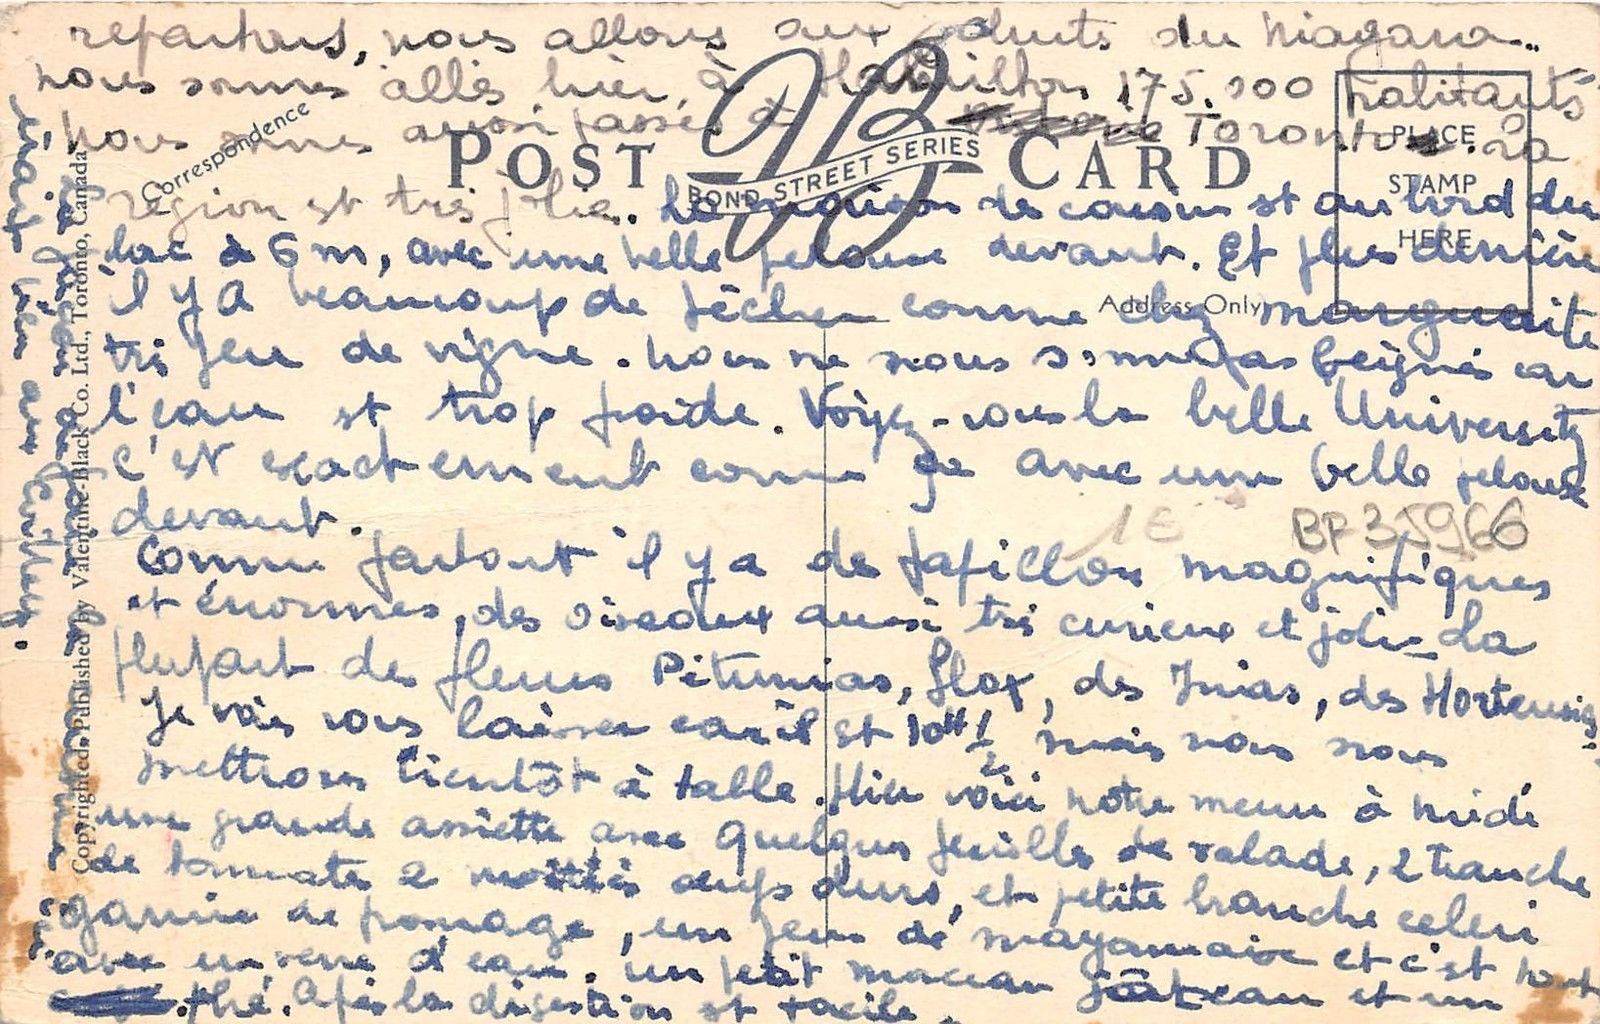 repartons, nous allons aux chutes du Niagara..
nous sommes allés hier, à Hamilton 175.000 habitants
Nous sommes aussi passés à Toronto. La
région est très jolie. La maison de cousin est au bord du
lac à 6 m, avec une belle pelouse devant. Et plus derrière
il y a beaucoup de pêcher comme chez Marguerite
très peu de vigne. Nous ne nous sommes pas beignés car
l'eau est trop froide. Voyez-vous la belle University
c'est exactement comme ça avec une belle pelouse
devant.
Comme partout il y a de papillon magnifiques
et énormes, des oiseaux aussi très curieux et jolis. La
plupart de fleurs Pétunias, flox, des Inias, des Hortensias
Je vais vous laisser car il est 10H 1/2 mais nous nous
mettrons bientôt à table. Hier voici notre menu à midi
une grande assiette avec quelques feuilles de salade, 2 tranche
de tomate 2 moitiés oeufs durs, et petite branche celeri
garnie de fromage, un peu de mayonnaise et c'est tout
avec un verre d'eau. un petit morceau gâteau et un
thé. Après la digestion est facile.
Correspondence
POST CARD
VB
BOND STREET SERIES
PLACE
STAMP
HERE
Address Only
1€
BP35966
Copyrighted. Published by Valentine-Black Co. Ltd., Toronto, Canada